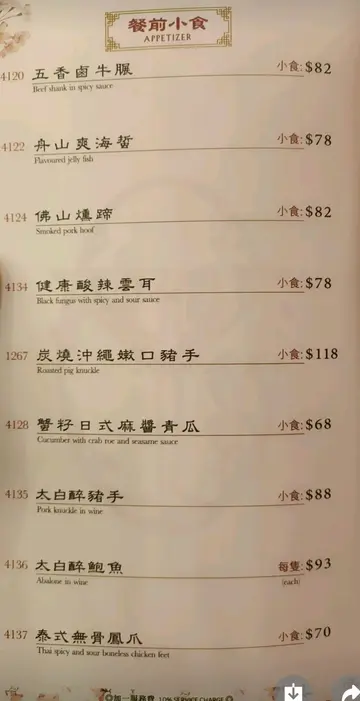 餐前小食
APPETIZER
4120 五香鹵牛𦟌 小食: $82
Beef shank in spicy sauce
4122 舟山爽海蜇 小食: $78
Flavoured jelly fish
4124 佛山燻蹄 小食: $82
Smoked pork hoof
4134 健康酸辣雲耳 小食: $78
Black fungus with spicy and sour sauce
1267 炭燒沖繩嫩口豬手 小食: $118
Roasted pig knuckle
4128 蟹籽日式麻醬青瓜 小食: $68
Cucumber with crab roe and seasame sauce
4135 太白醉豬手 小食: $88
Pork knuckle in wine
4136 太白醉鮑魚 每隻: $93
Abalone in wine (each)
4137 泰式無骨鳳爪 小食: $70
Thai spicy and sour boneless chicken feet
加一服務費 10% SERVICE CHARGE